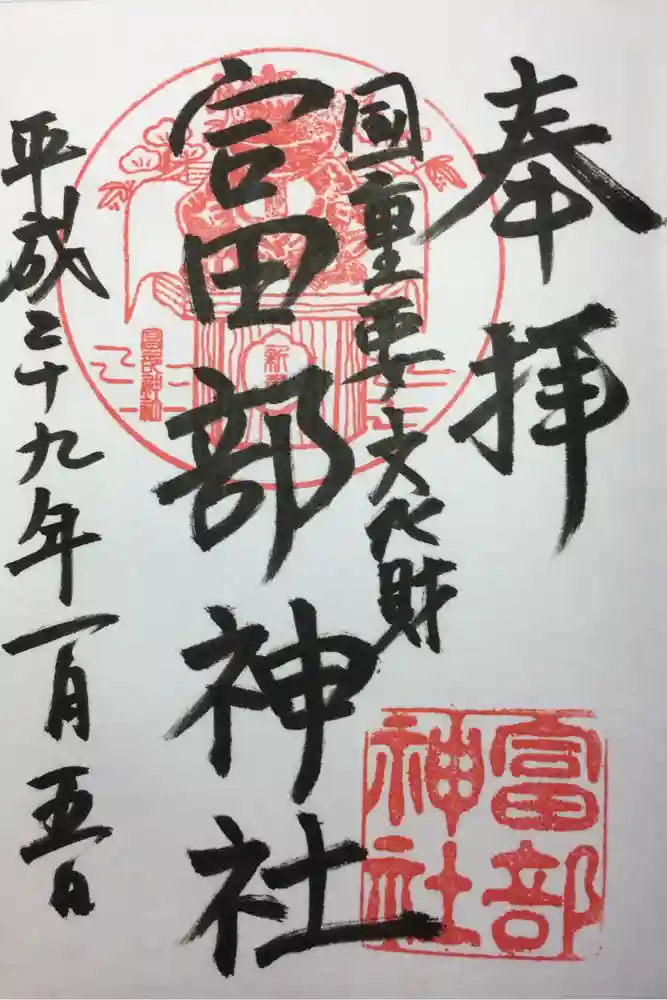 奉拝
国重要文化財
富田部神社
平成二十九年一月五日
富部神社
富部神社